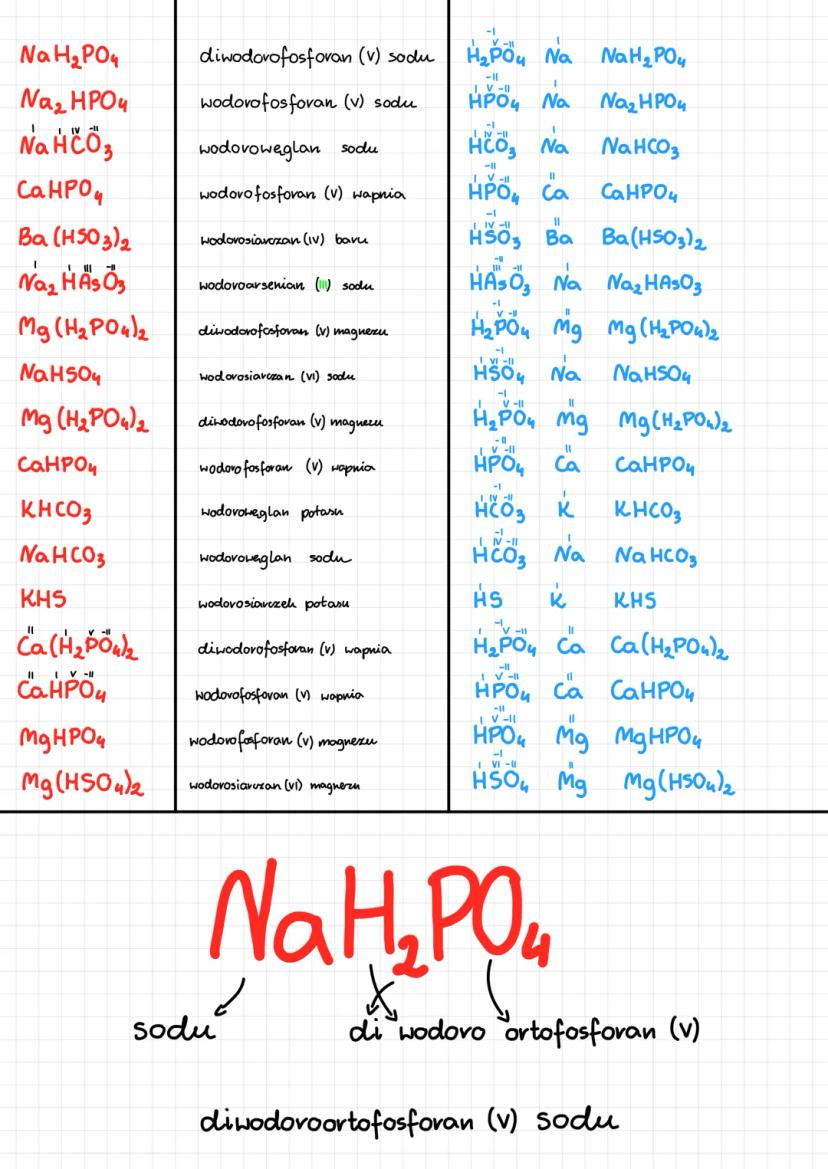 NaH₂PO₄ diwodorofosforan (v) sodu -I I V -II H₂PO₄ I Na NaH₂PO₄
Na₂HPO₄ wodorofosforan (v) sodu -II I V -II HPO₄ I Na Na₂HPO₄
I I IV -II NaHCO₃ wodorowęglan sodu -I I IV -II HCO₃ I Na NaHCO₃
CaHPO₄ wodorofosforan (v) wapnia -II I V -II HPO₄ II Ca CaHPO₄
Ba(HSO₃)₂ wodorosiarczan (IV) baru -I I IV -II HSO₃ II Ba Ba(HSO₃)₂
I I III -II Na₂HAsO₃ wodoroarsenian (III) sodu -II I III -II HAsO₃ I Na Na₂HAsO₃
Mg(H₂PO₄)₂ diwodorofosforan (v) magnezu -I I V -II H₂PO₄ II Mg Mg(H₂PO₄)₂
NaHSO₄ wodorosiarczan (VI) sodu -I I VI -II HSO₄ I Na NaHSO₄
Mg(H₂PO₄)₂ diwodorofosforan (v) magnezu -I I V -II H₂PO₄ II Mg Mg(H₂PO₄)₂
CaHPO₄ wodorofosforan (v) wapnia -II I V -II HPO₄ II Ca CaHPO₄
KHCO₃ wodorowęglan potasu -I I IV -II HCO₃ I K KHCO₃
NaHCO₃ wodorowęglan sodu -I I IV -II HCO₃ I Na NaHCO₃
KHS wodorosiarczek potasu I HS I K KHS
II I V -II Ca(H₂PO₄)₂ diwodorofosforan (v) wapnia -I I V -II H₂PO₄ II Ca Ca(H₂PO₄)₂
II I V -II CaHPO₄ wodorofosforan (v) wapnia -II I V -II HPO₄ II Ca CaHPO₄
MgHPO₄ wodorofosforan (v) magnezu -II I V -II HPO₄ II Mg MgHPO₄
Mg(HSO₄)₂ wodorosiarczan (VI) magnezu -I I VI -II HSO₄ II Mg Mg(HSO₄)₂
NaH₂PO₄
sodu di wodoro ortofosforan (v)
diwodoroortofosforan (v) sodu